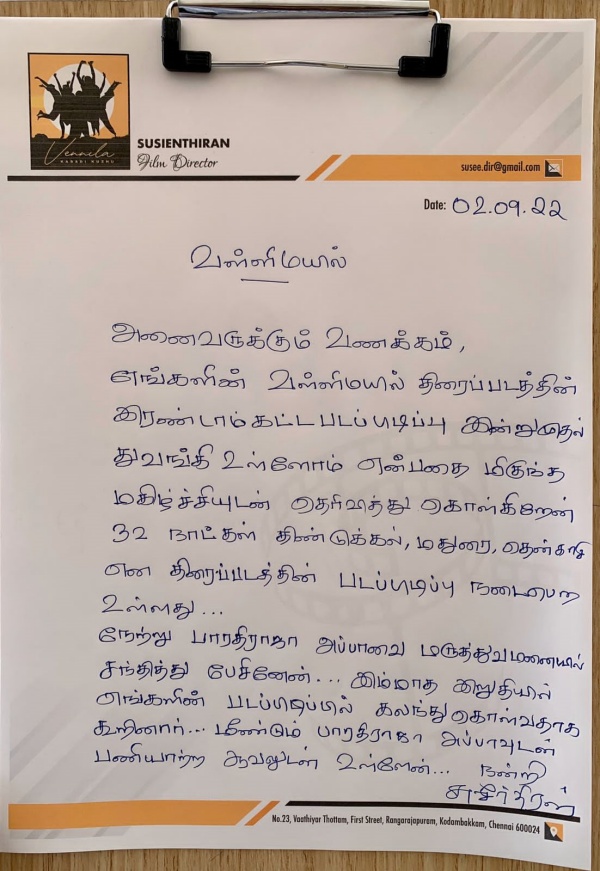 Vennila
KABADI KUZHU
SUSIENTHIRAN
Film Director
susee.dir@gmail.com
Date: 02.09.22
வள்ளிமயில்
அனைவருக்கும் வணக்கம்,
எங்களின் வள்ளிமயில் திரைப்படத்தின்
இரண்டாம்கட்ட படப்பிடிப்பு இன்றுமுதல்
துவங்கி உள்ளோம் என்பதை மிகுந்த
மகிழ்ச்சியுடன் தெரிவித்து கொள்கிறேன்
32 நாட்கள் திண்டுக்கல், மதுரை, தென்காசி
என திரைப்படத்தின் படப்பிடிப்பு நடைபெற
உள்ளது...
நேற்று பாரதிராஜா அப்பாவை மருத்துவமனையில்
சந்தித்து பேசினேன்... இம்மாத இறுதியில்
எங்களின் படப்பிடிப்பில் கலந்துகொள்வதாக
கூறினார்... மீண்டும் பாரதிராஜா அப்பாவுடன்
பணியாற்ற ஆவலுடன் உள்ளேன்... நன்றி
சுசீந்திரன்
No.23, Vaathiyar Thottam, First Street, Rangarajapuram, Kodambakkam, Chennai 600024